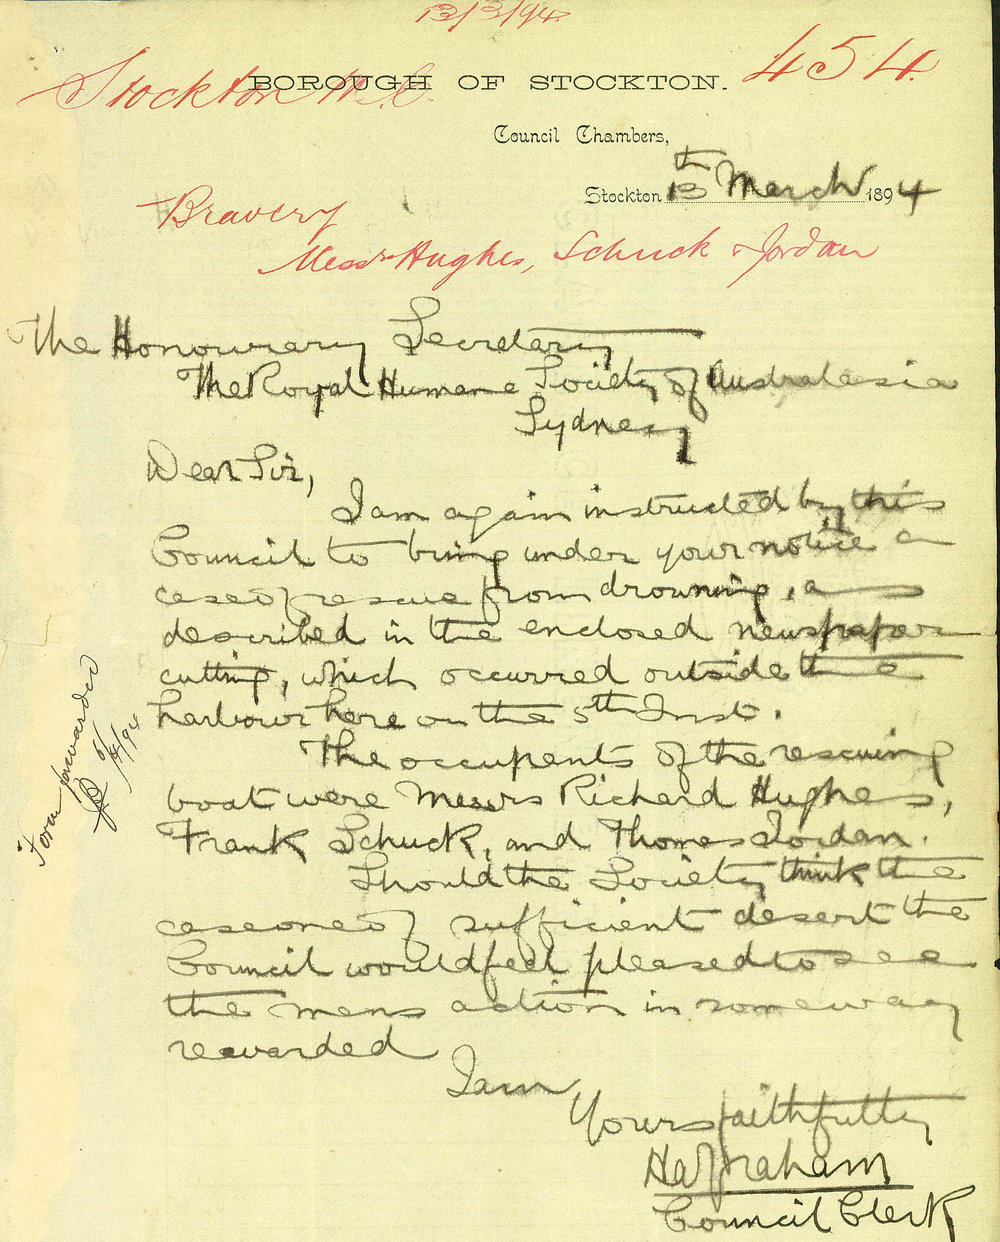 13/3/94
454
Stockton M.C.
BOROUGH OF STOCKTON.
Council Chambers,
Stockton 13th March 1894
Bravery
Messrs Hughes, Schuck & Jordan
The Honourary Secretary
The Royal Humane Society of Australasia
Sydney
Dear Sir,
I am again instructed by this
Council to bring under your notice a
case of rescue from drowning, as
described in the enclosed newspaper
cutting, which occurred outside the
harbour here on the 5th Inst.
The occupents of the rescuing
boat were Messrs Richard Hughes,
Frank Schuck, and Thomas Jordan.
Should the Society think the
case one of sufficient desert the
Council would feel pleased to see
the mens action in some way
rewarded
I am
Yours faithfully
Council Clerk
Form forwarded